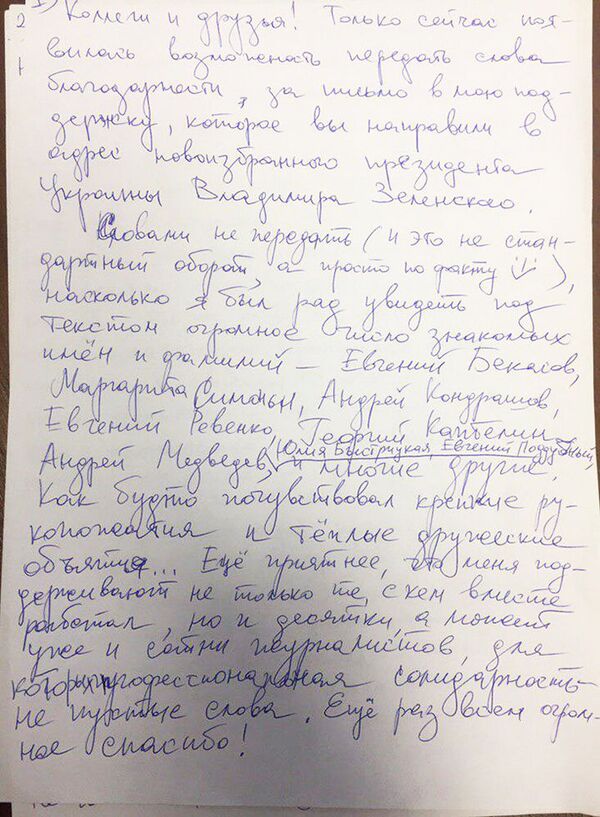 2
1) Коллеги и друзья! Только сейчас поя-
1
вилась возможность передать слова
благодарности, за письмо в мою под-
держку, которое вы направили в
адрес новоизбранного президента
Украины Владимира Зеленского.
Словами не передать (и это не стан-
дартный оборот, а просто по факту),
насколько я был рад увидеть под
текстом огромное число знакомых
имён и фамилий – Евгений Бекасов,
Маргарита Симоньян, Андрей Кондрашов,
Евгений Ревенко, Георгий Капбелин
Юлия Быстрицкая, Евгений Поддубный,
Андрей Медведев, и многие другие.
Как будто почувствовал крепкие ру-
копожатия и тёплые дружеские
объятия... Ещё приятнее, что меня под-
держивают не только те, с кем вместе
работал, но и десятки, а может
уже и сотни журналистов, для
которых профессиональная солидарность
не пустые слова. Ещё раз всем огром-
ное спасибо!